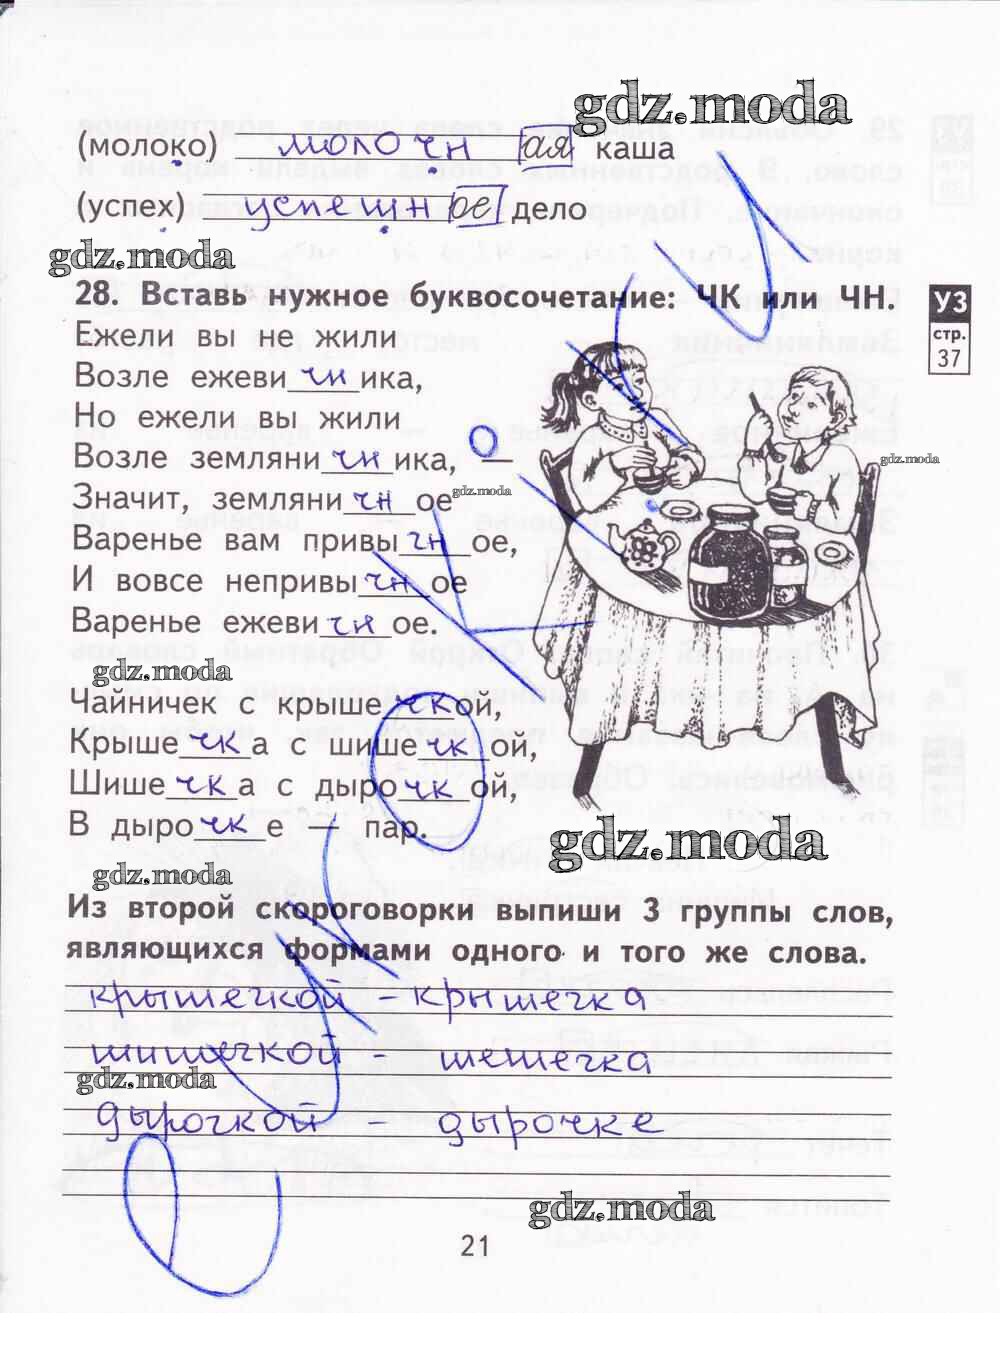 gdz.moda
(молоко) молочн ая каша
(успех) успешн ое дело
gdz.moda
28. Вставь нужное буквосочетание: ЧК или ЧН.
УЗ
стр.
37
Ежели вы не жили
Возле ежевичника,
Но ежели вы жили
Возле земляничника, —
gdz.moda
Значит, земляничное
gdz.moda
Варенье вам привычное,
И вовсе непривычное
Варенье ежевичное.
gdz.moda
Чайничек с крышечкой,
Крышечка с шишечкой,
Шишечка с дырочкой,
В дырочке — пар.
gdz.moda
gdz.moda
Из второй скороговорки выпиши 3 группы слов,
являющихся формами одного и того же слова.
крышечкой - крышечка
шишечкой - шешечка
gdz.moda
дырочкой - дырочке
gdz.moda
21